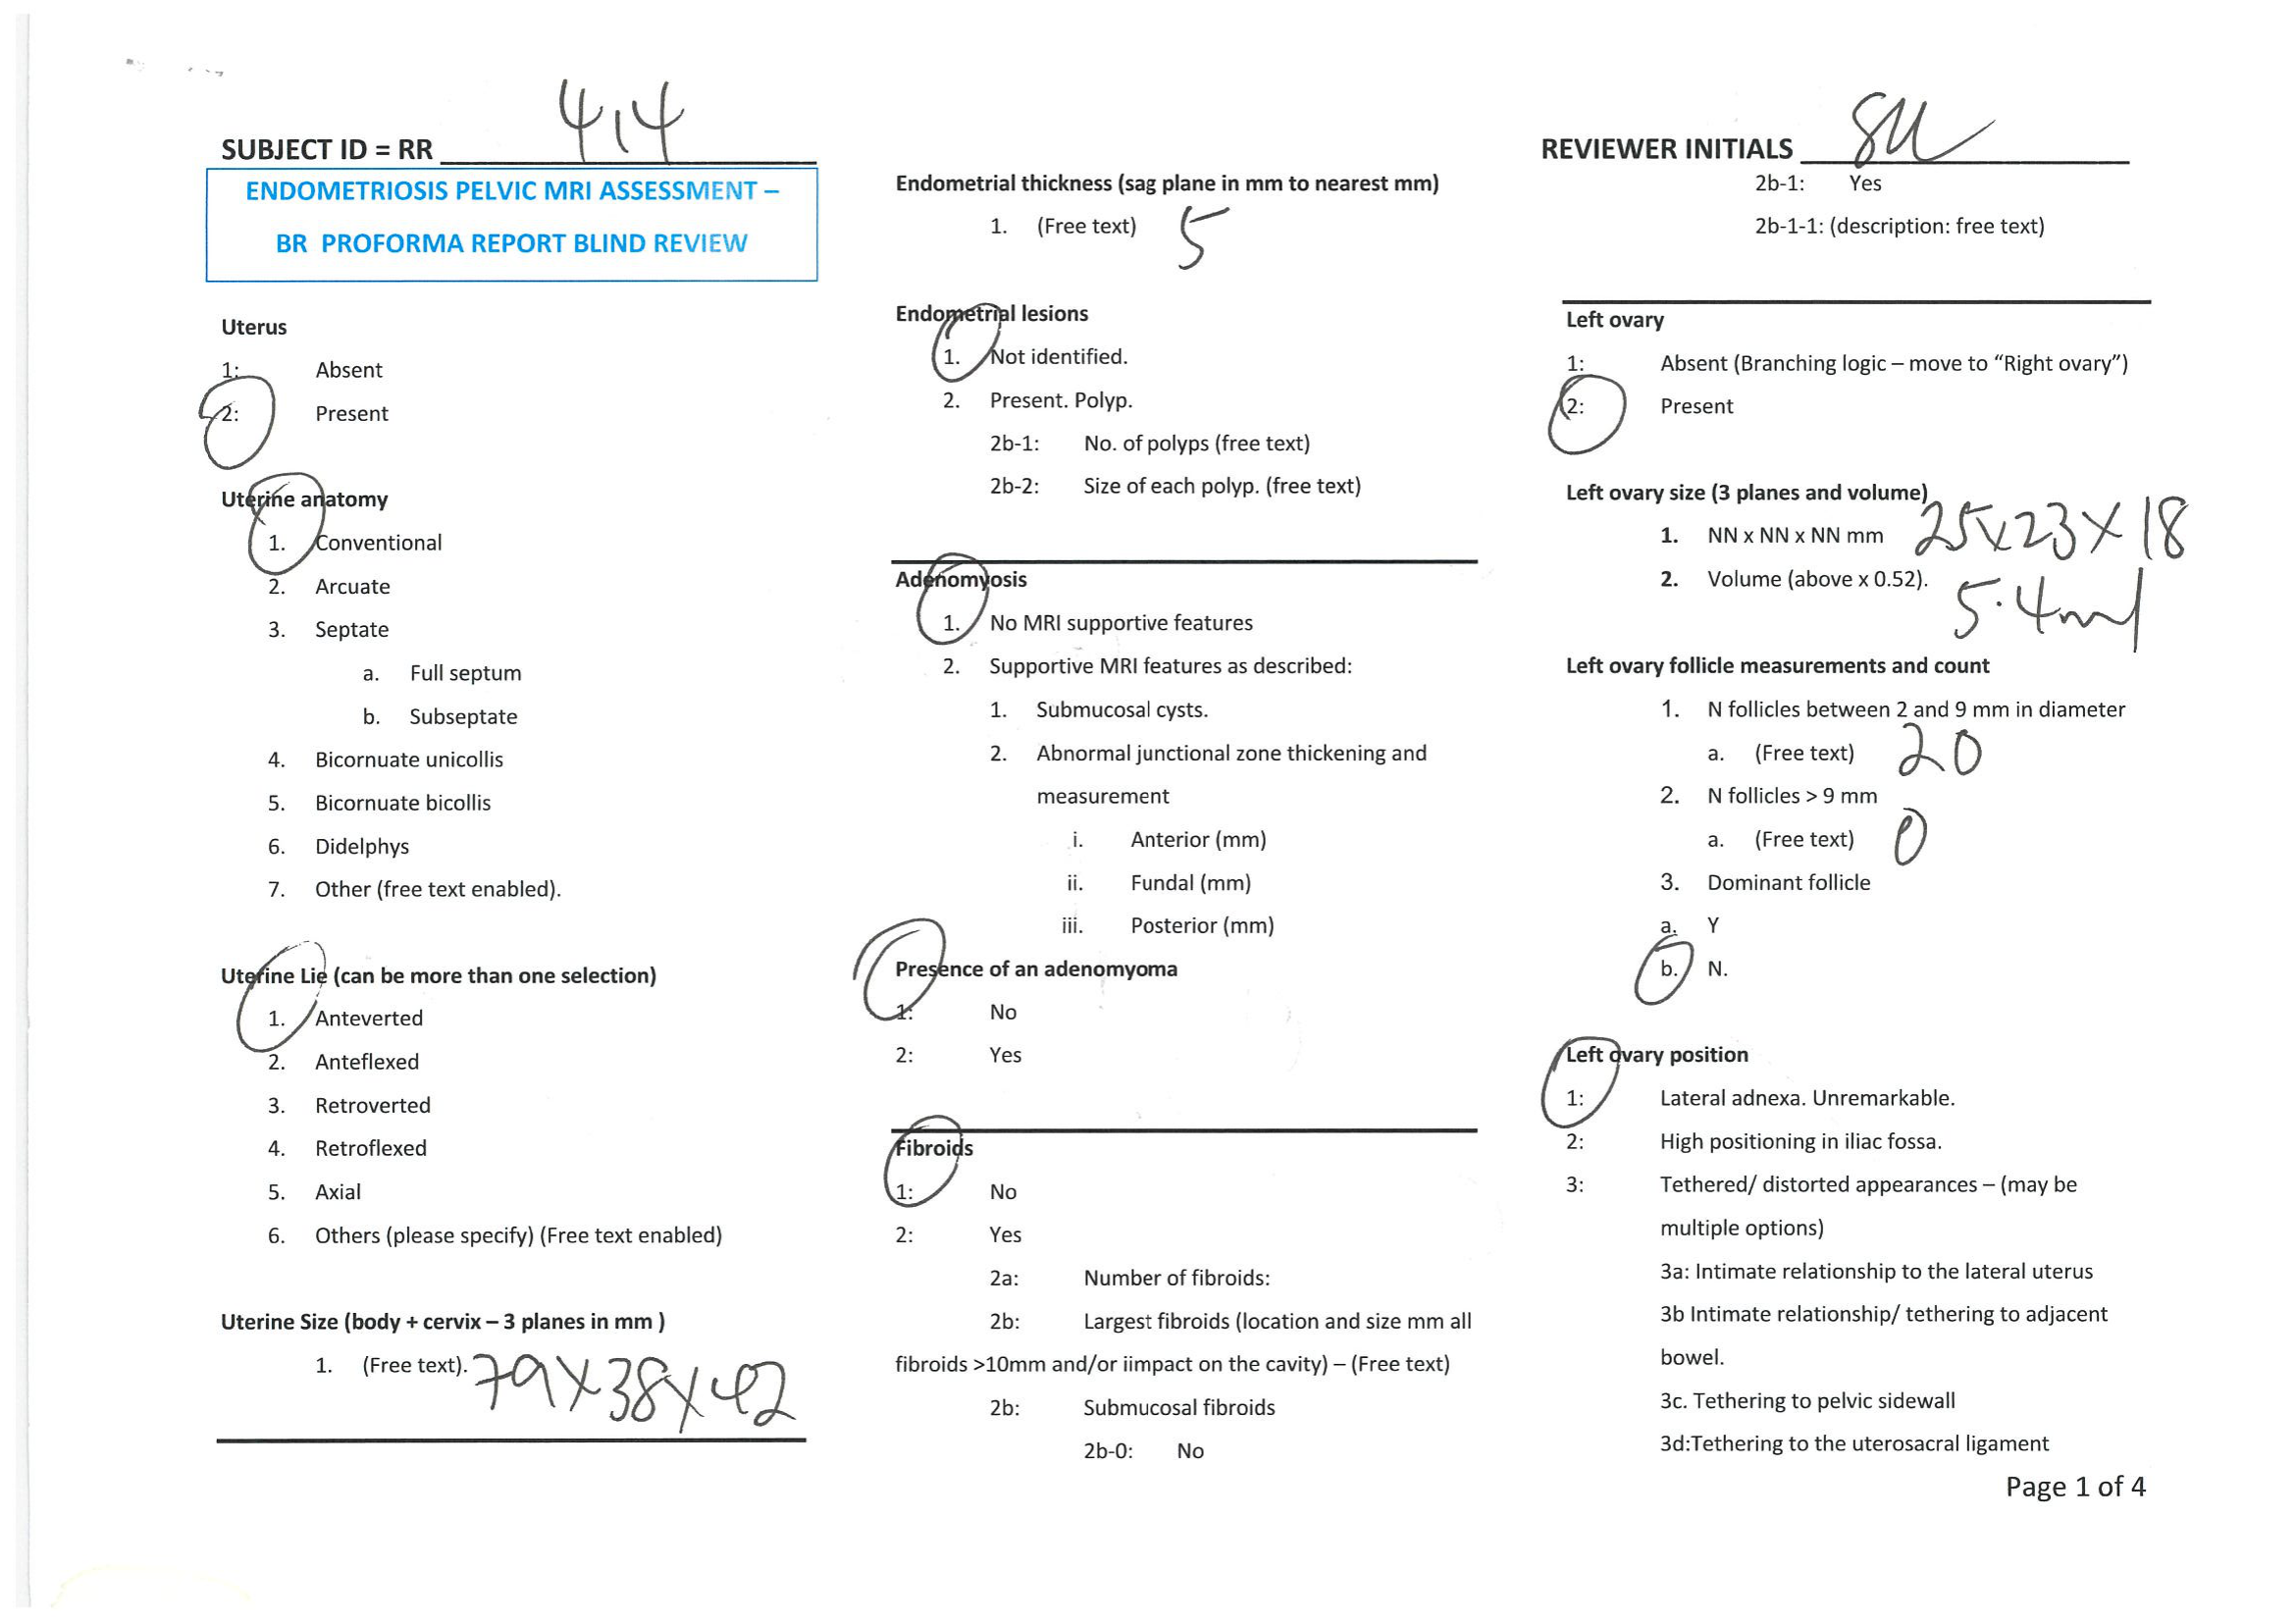 SUBJECT ID = RR 414
ENDOMETRIOSIS PELVIC MRI ASSESSMENT –
BR PROFORMA REPORT BLIND REVIEW
Uterus
1: Absent
2: Present
Uterine anatomy
1. Conventional
2. Arcuate
3. Septate
a. Full septum
b. Subseptate
4. Bicornuate unicollis
5. Bicornuate bicollis
6. Didelphys
7. Other (free text enabled).
Uterine Lie (can be more than one selection)
1. Anteverted
2. Anteflexed
3. Retroverted
4. Retroflexed
5. Axial
6. Others (please specify) (Free text enabled)
Uterine Size (body + cervix – 3 planes in mm )
1. (Free text). 79x38x42
Endometrial thickness (sag plane in mm to nearest mm)
1. (Free text) 5
Endometrial lesions
1. Not identified.
2. Present. Polyp.
2b-1: No. of polyps (free text)
2b-2: Size of each polyp. (free text)
Adenomyosis
1. No MRI supportive features
2. Supportive MRI features as described:
1. Submucosal cysts.
2. Abnormal junctional zone thickening and
measurement
i. Anterior (mm)
ii. Fundal (mm)
iii. Posterior (mm)
Presence of an adenomyoma
1: No
2: Yes
Fibroids
1: No
2: Yes
2a: Number of fibroids:
2b: Largest fibroids (location and size mm all
fibroids >10mm and/or iimpact on the cavity) – (Free text)
2b: Submucosal fibroids
2b-0: No
REVIEWER INITIALS
2b-1: Yes
2b-1-1: (description: free text)
Left ovary
1: Absent (Branching logic – move to “Right ovary”)
2: Present
Left ovary size (3 planes and volume)
1. NN x NN x NN mm 25x23x18
2. Volume (above x 0.52). 5.4ml
Left ovary follicle measurements and count
1. N follicles between 2 and 9 mm in diameter
a. (Free text) 20
2. N follicles > 9 mm
a. (Free text) 0
3. Dominant follicle
a. Y
b. N.
Left ovary position
1: Lateral adnexa. Unremarkable.
2: High positioning in iliac fossa.
3: Tethered/ distorted appearances – (may be
multiple options)
3a: Intimate relationship to the lateral uterus
3b Intimate relationship/ tethering to adjacent
bowel.
3c. Tethering to pelvic sidewall
3d:Tethering to the uterosacral ligament
Page 1 of 4